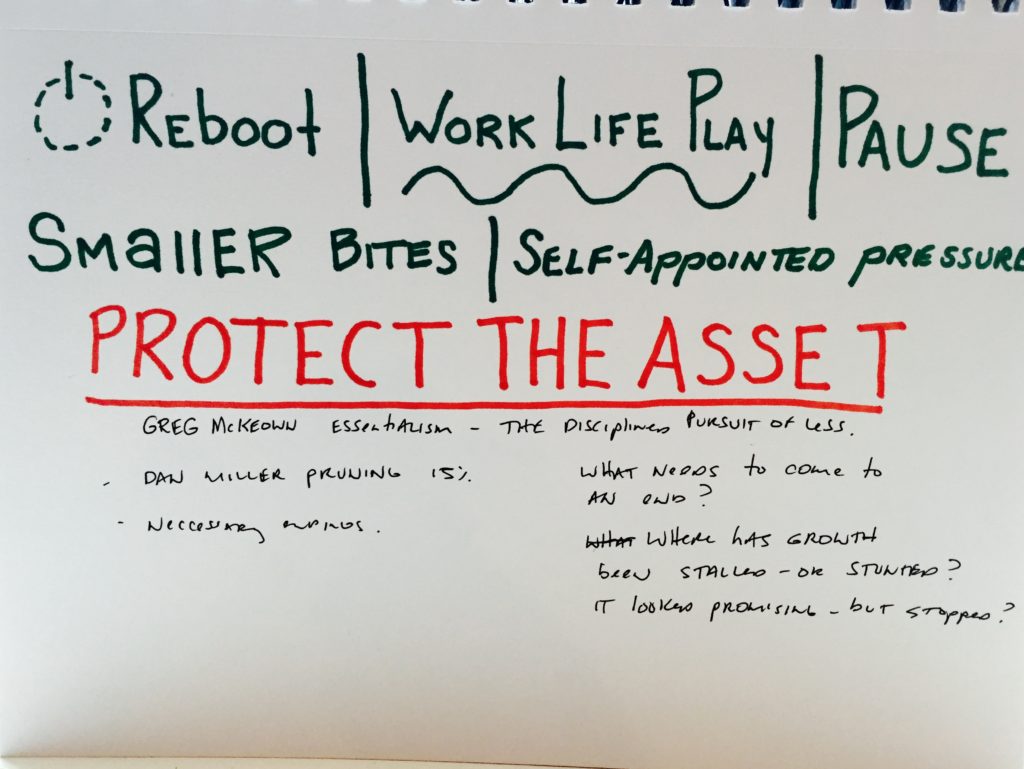 Reboot | WORK LIFE PLAY | PAUSE
SMallER BITES | SELF-APPOINTED PRESSURE
PROTECT THE ASSET
GREG McKEOWN ESSENTIALISM - THE DISCIPLINED PURSUIT OF LESS.
- DAN MILLER PRUNING 15%
- NECCESSARY ENDINGS.
WHAT NEEDS to COME to
AN END?
WHAT WHERE hAS GROWTH
bEEN STALLED - OR STUNTED?
IT lookED PROMISING - buT STOPPED?